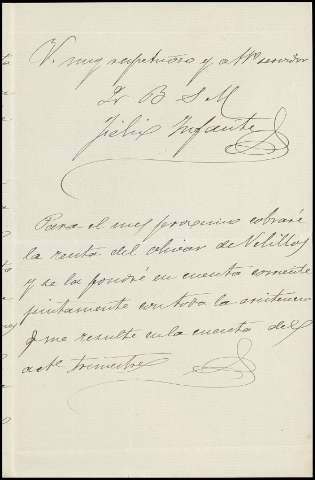 V. muy respetuoso y atto. servidor
Q B S M
Felix Infante
Para el mes proximo cobraré
la renta del olivar de Velillos
y se la pondré en cuenta corriente
juntamente con toda la
q me resulte en la cuenta del
actl. trimestre